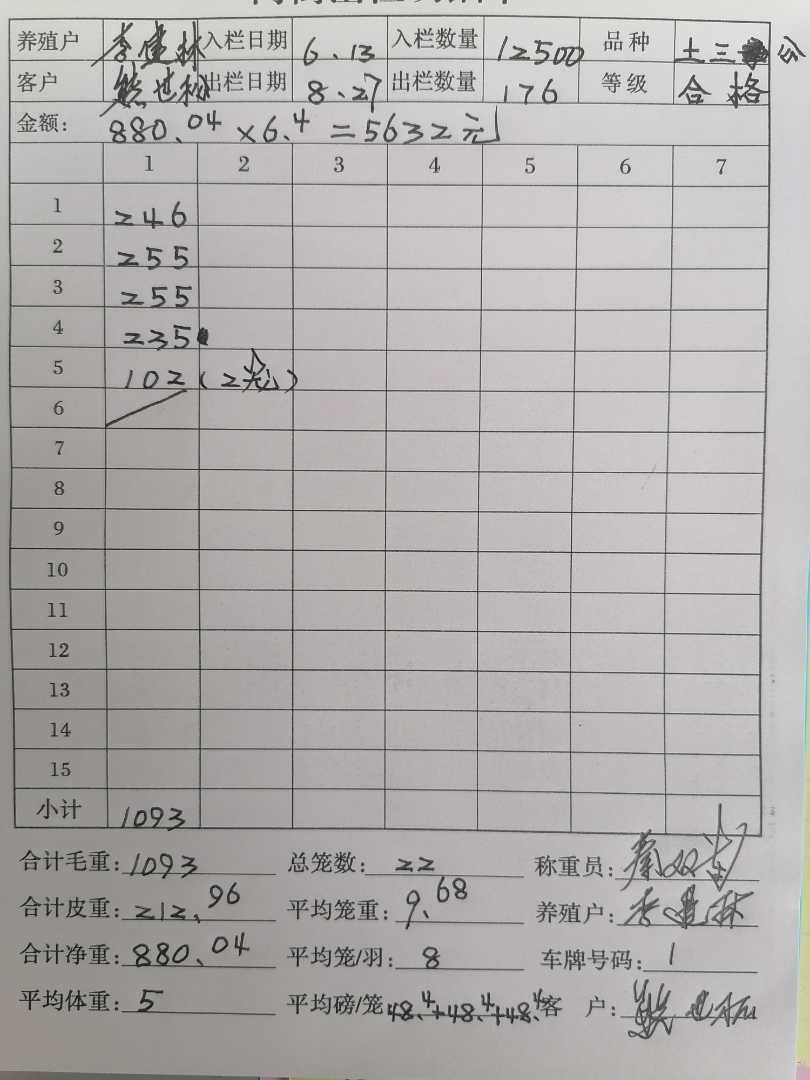 养殖户 李建林 入栏日期 6.13 入栏数量 12500 品种 土三
客户 出栏日期 8.27 出栏数量 176 等级 合格
金额: 880.04×6.4=5632元
1 2 3 4 5 6 7
1 246
2 255
3 255
4 235
5 102(2笼)
6
7
8
9
10
11
12
13
14
15
小计 1093
合计毛重: 1093 总笼数: 22 称重员:
合计皮重: 212.96 平均笼重: 9.68 养殖户: 李建林
合计净重: 880.04 平均笼/羽: 8 车牌号码: 1
平均体重: 5 平均磅/笼: 48.4+48.4+48.4 客户: